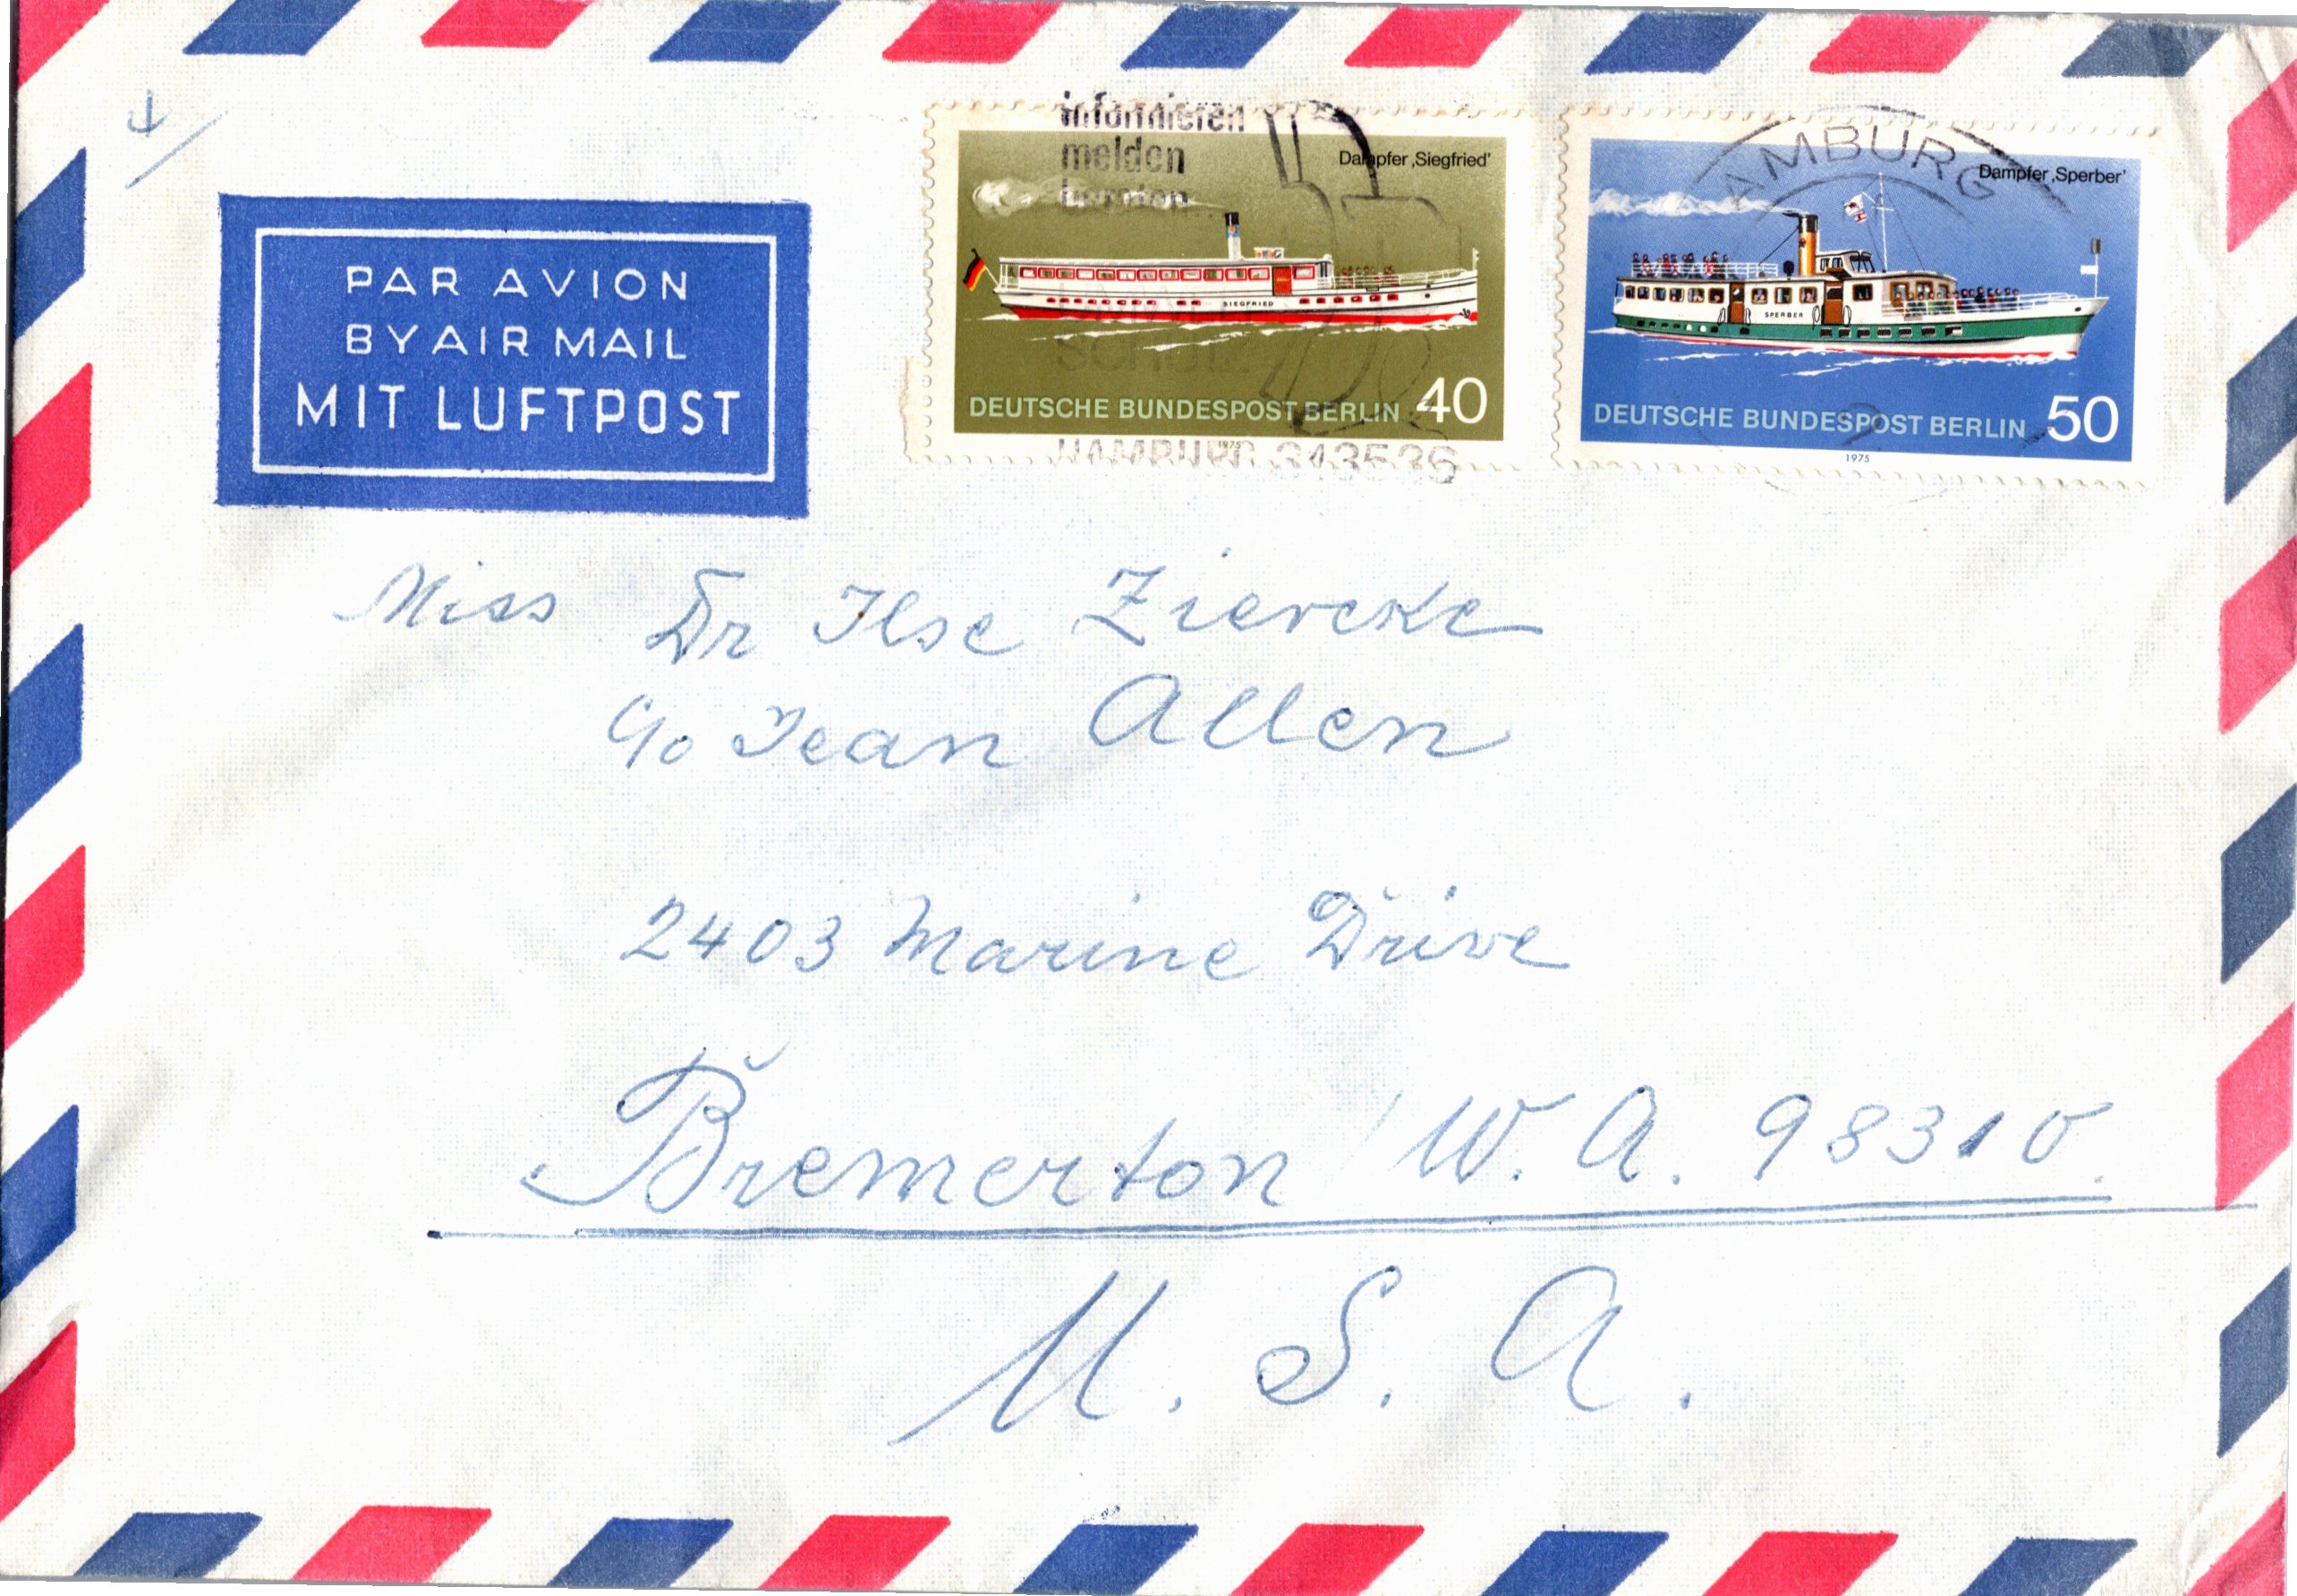 PAR AVION
BY AIR MAIL
MIT LUFTPOST
informieren
melden
beraten
Dampfer ‚Siegfried'
SIEGFRIED
DEUTSCHE BUNDESPOST BERLIN 40
1975
HAMBURG 343536
AMBURG
Dampfer ‚Sperber'
SPERBER
DEUTSCHE BUNDESPOST BERLIN 50
1975
Miss Dr Ilse Ziercke
c/o Jean Allen
2403 Marine Drive
Bremerton / W. A. 98310.
U. S. A.